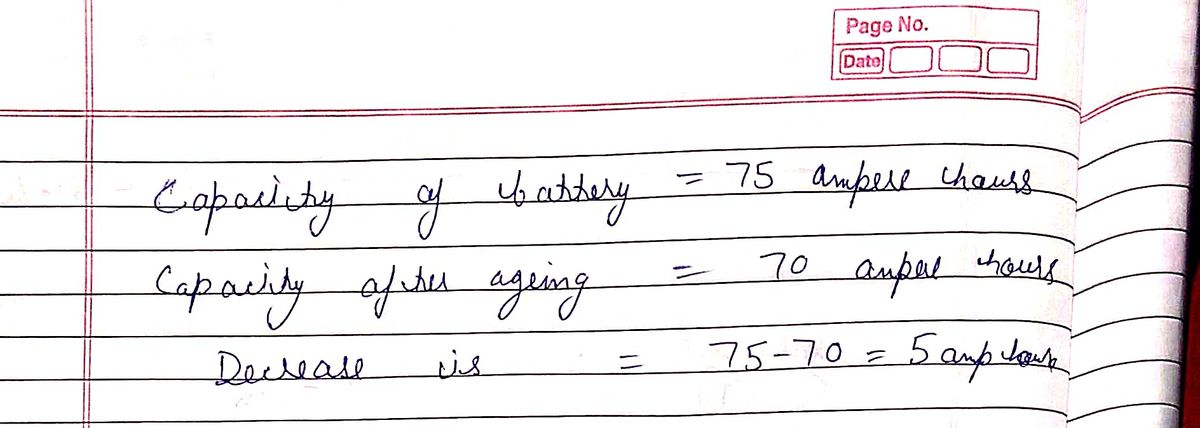 Page No.
Date
Capacity of battery = 75 ampere hours
Capacity after ageing = 70 ampere hours
Decrease is = 75-70 = 5 amp hours